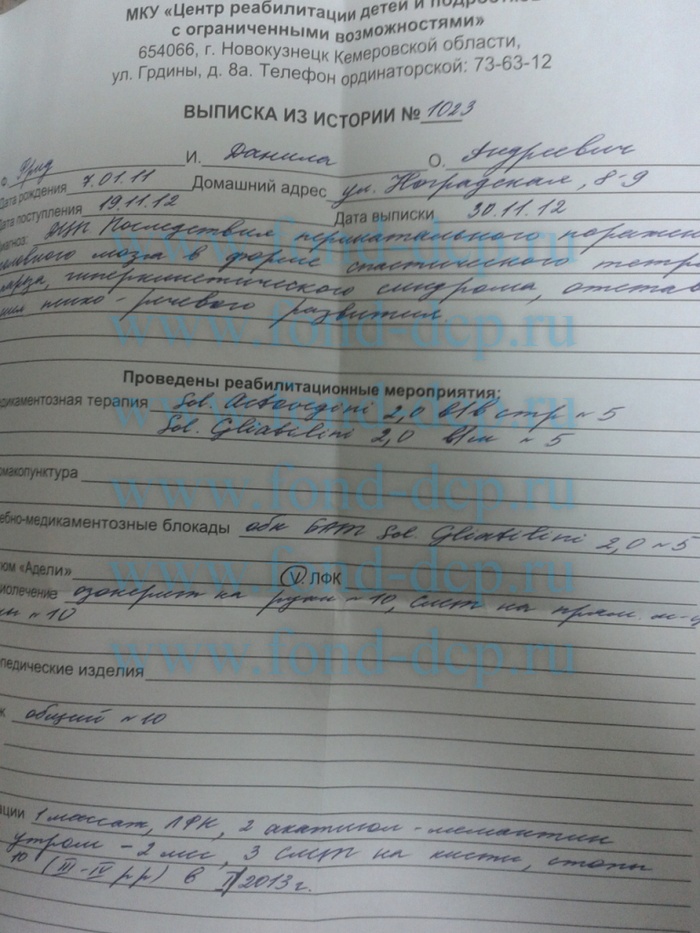 МКУ «Центр реабилитации детей и подростков
с ограниченными возможностями»
654066, г. Новокузнецк Кемеровской области,
ул. Грдины, д. 8а. Телефон ординаторской: 73-63-12
ВЫПИСКА ИЗ ИСТОРИИ № 1023
И. Данила О. Андреевич
Дата рождения 7.01.11 Домашний адрес ул. Ноградская, 8-9
Дата поступления 19.11.12 Дата выписки 30.11.12
диагноз: Последствия перинатального поражен
головного мозга в форме спастического тетра
пареза, гиперкинетического синдрома, отстав
ния психо-речевого развития
www.fond-dcp.ru
Проведены реабилитационные мероприятия:
дикаментозная терапия Sol. Actovegini 2,0 в/в стр №5
Sol. Gliatilini 2,0 в/м №5
www.fond-dcp.ru
рмакопунктура
ебно-медикаментозные блокады обк БАТ Sol. Gliatilini 2,0 №5
юм «Адели» V ЛФК
иолечение озокерит на руки №10, СМТ на прям. м-ц
№10
www.fond-dcp.ru
педические изделия
ж общий №10
ации 1 массаж, ЛФК, 2 акатинол-мемантин
утром - 2 мес, 3 СМТ на кисти, стопы
10 (III-IV рр) в II/2013г.